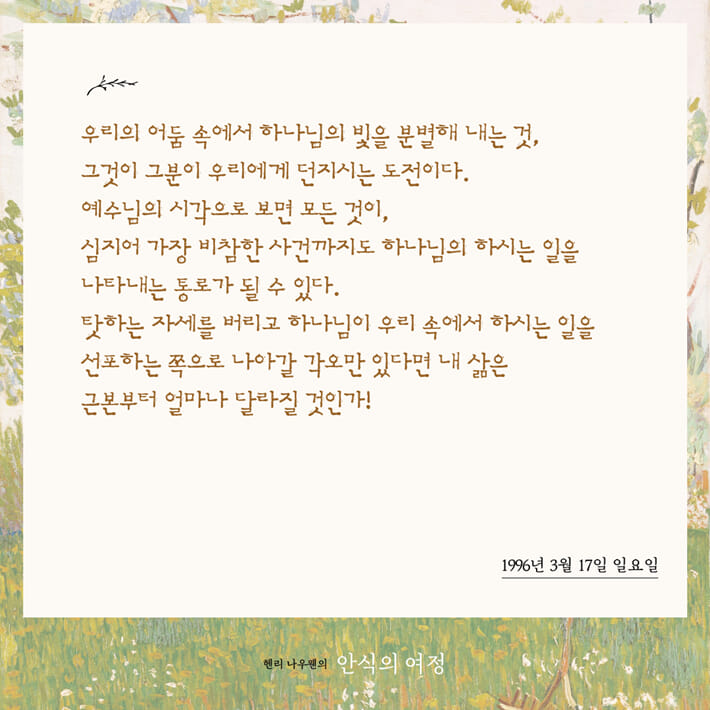 우리의 어둠 속에서 하나님의 빛을 분별해 내는 것,
그것이 그분이 우리에게 던지시는 도전이다.
예수님의 시각으로 보면 모든 것이,
심지어 가장 비참한 사건까지도 하나님의 하시는 일을
나타내는 통로가 될 수 있다.
탓하는 자세를 버리고 하나님이 우리 속에서 하시는 일을
선포하는 쪽으로 나아갈 각오만 있다면 내 삶은
근본부터 얼마나 달라질 것인가!
1996년 3월 17일 일요일
헨리 나우웬의 안식의 여정